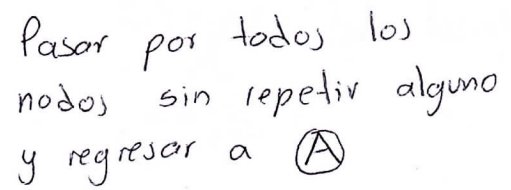 Pasar por todos los
nodos sin repetir alguno
y regresar a A